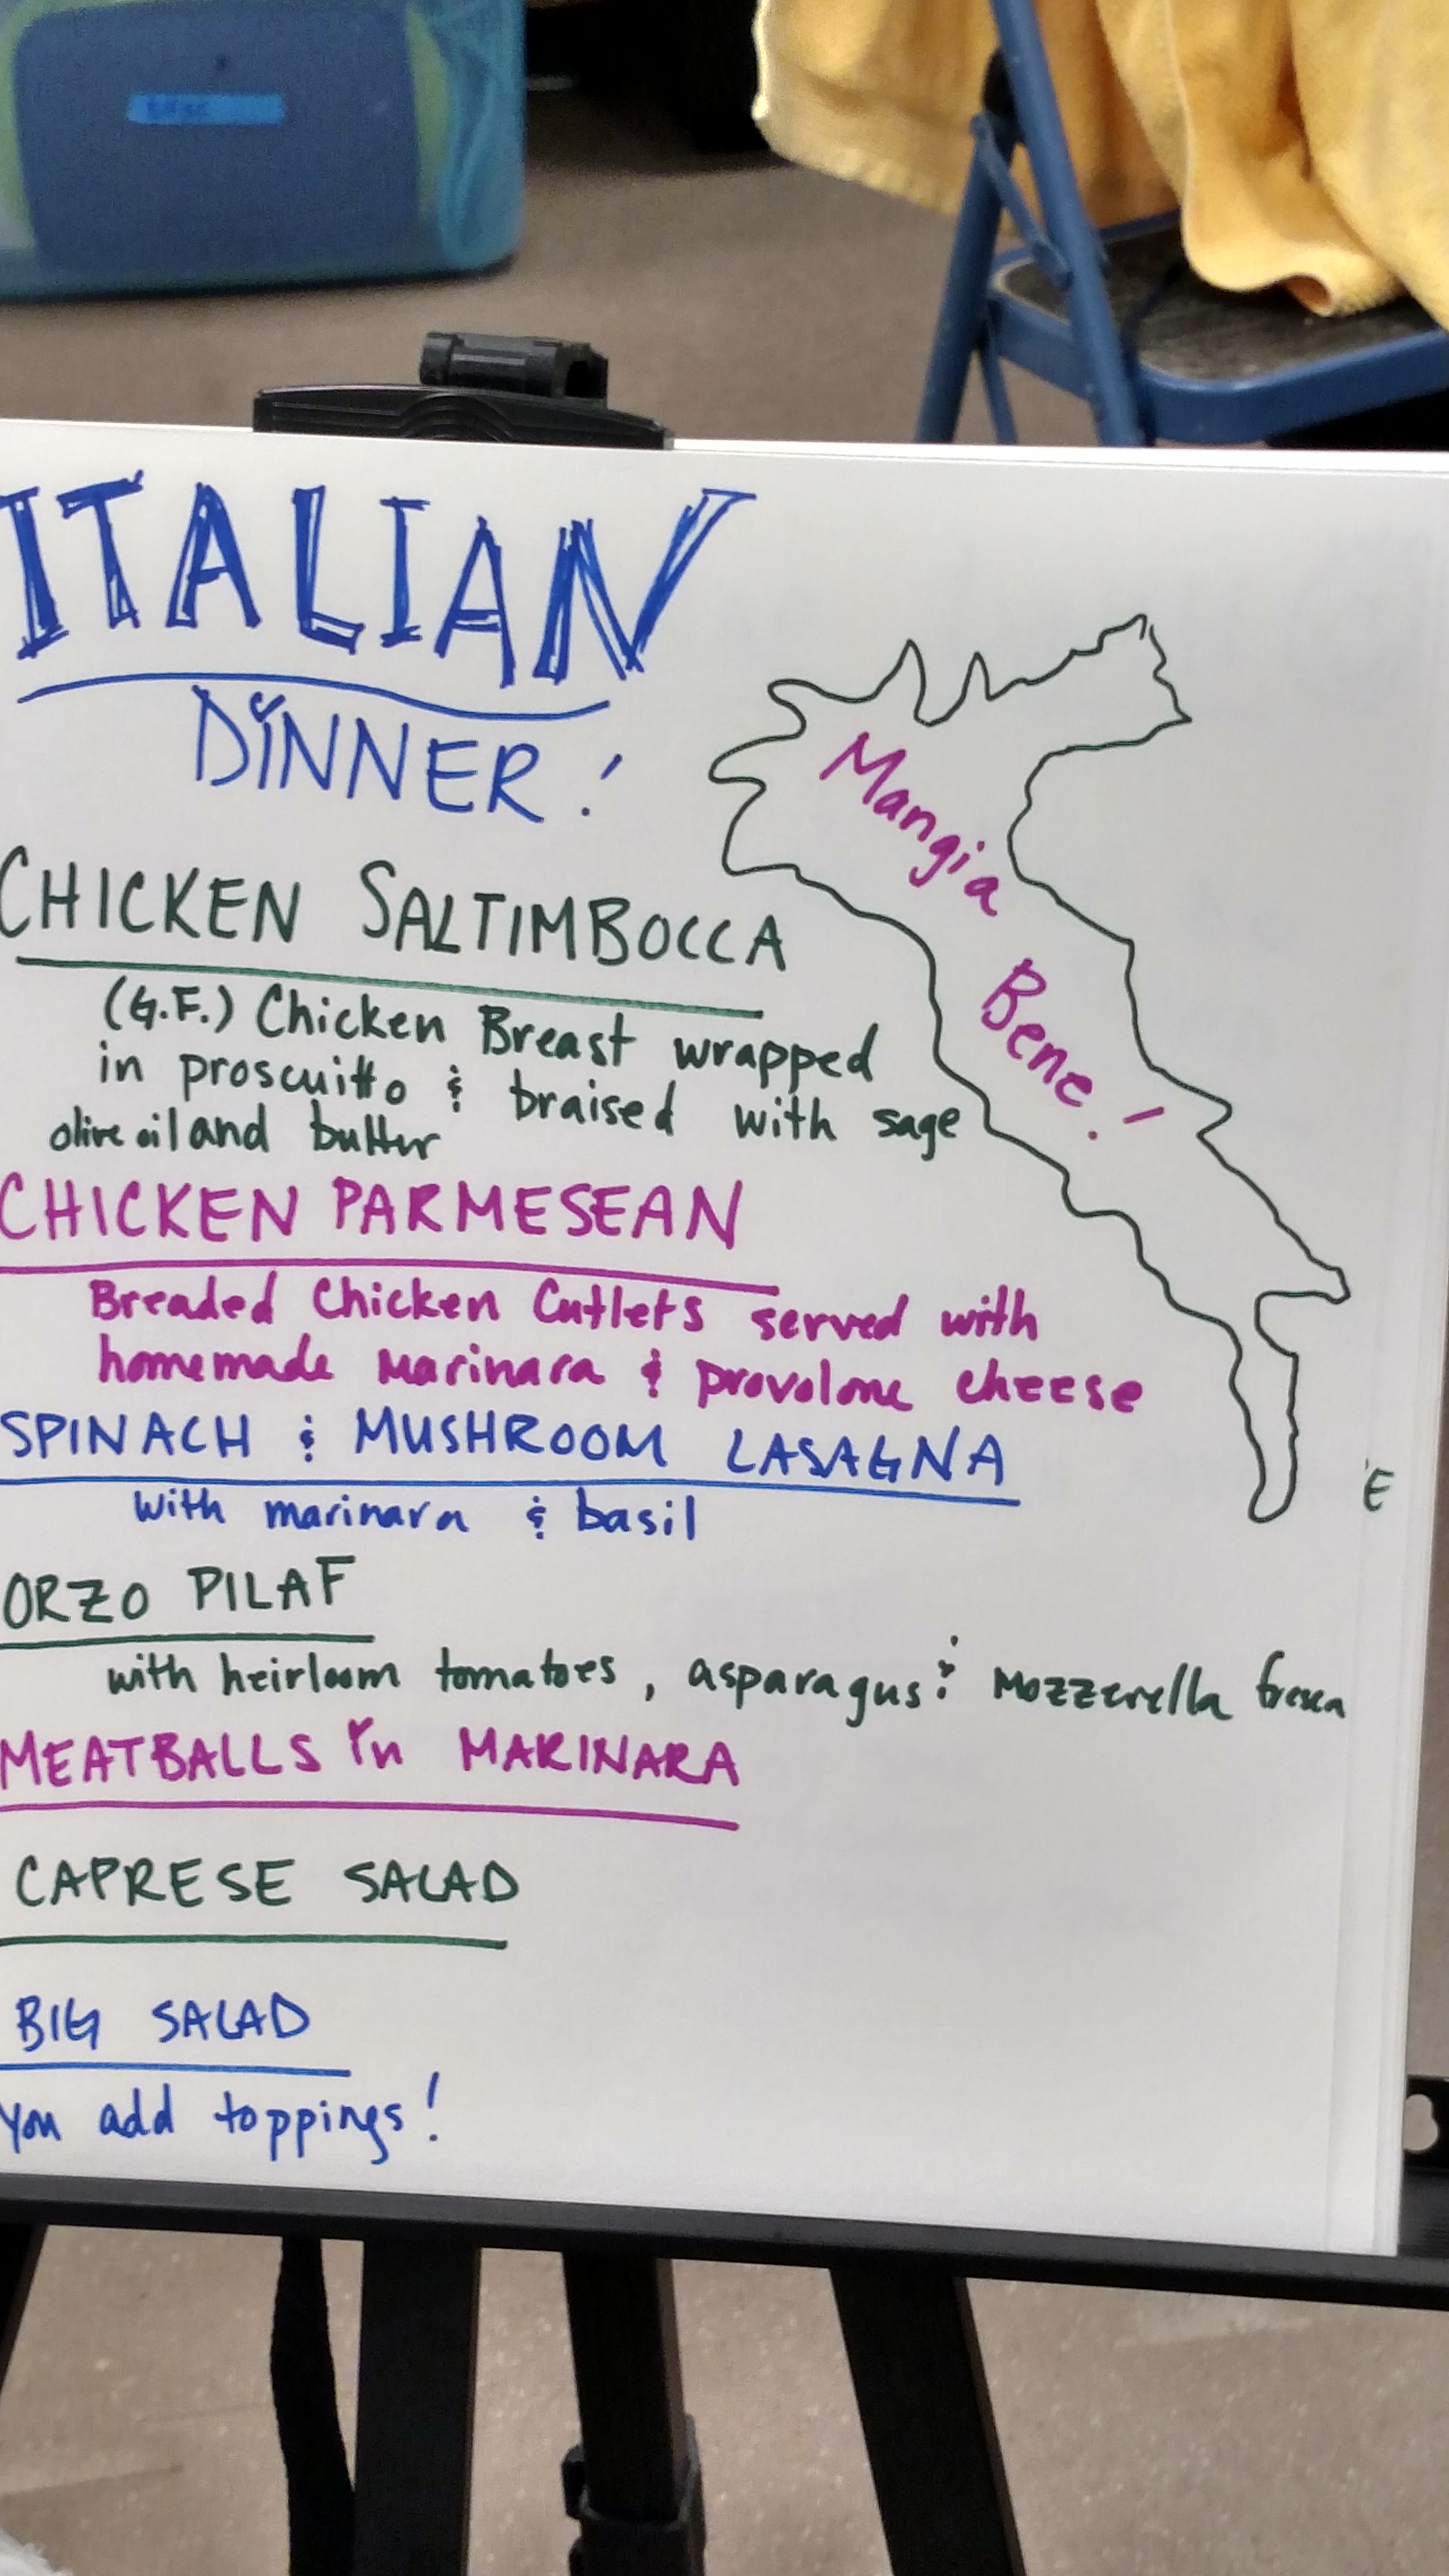 ITALIAN
DINNER!
Mangia
Bene!
CHICKEN SALTIMBOCCA
(G.F.) Chicken Breast wrapped
in proscuitto & braised with sage
olive oil and butter
CHICKEN PARMESEAN
Breaded Chicken Cutlets served with
homemade marinara & provolone cheese
SPINACH & MUSHROOM LASAGNA
with marinara & basil
ORZO PILAF
with heirloom tomatoes, asparagus & Mozzerella fresca
MEATBALLS in MARINARA
CAPRESE SALAD
BIG SALAD
you add toppings!